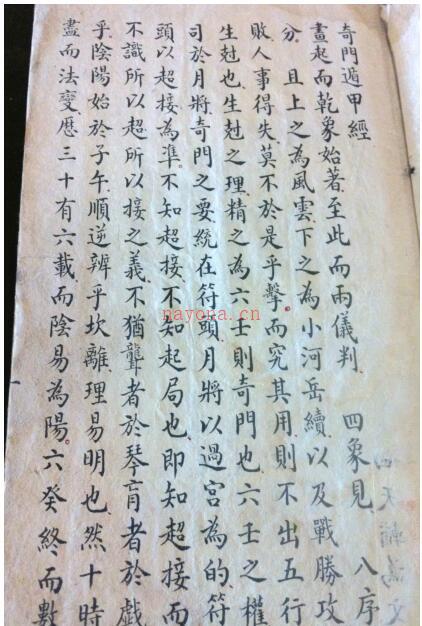 奇門遁甲經
畫起而乾象始著至此而兩儀判 四象見 八序
分 且上之為風雲下之為小河岳續以及戰勝攻
敗人事得失莫不於是乎擊而究其用則不出五行
生尅也生尅之理精之為六壬則奇門也六壬之權
司於月將奇門之要統在符頭月將以過宮為的符
頭以超接為準不知超接不知起局也即知超接而
不識所以超所以接之義不猶聾者於琴肓者於戲
乎陰陽始於子午順逆辨乎坎離理易明也然十時
盡而法變歷三十有六載而陰易為陽六癸終而數
nayona.cn